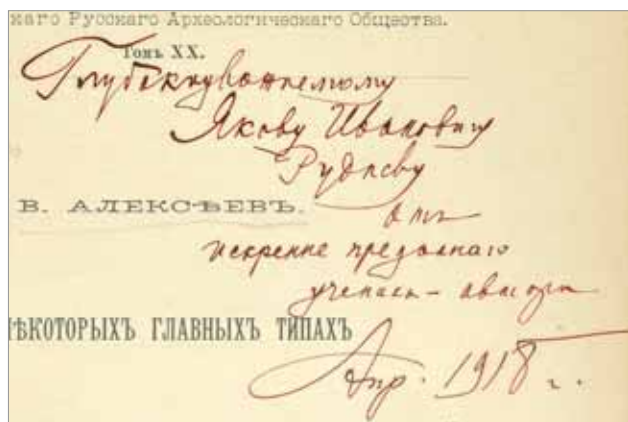 каго Русскаго Археологическаго Общества.
Томъ XX.
Глубокоуважаемому
Якову Ивановичу
Рудневу
В. АЛЕКСѢЕВЪ.
отъ
искренне преданнаго
ученика – автора
НѢКОТОРЫХЪ ГЛАВНЫХЪ ТИПАХЪ
Апр. 1918 г.